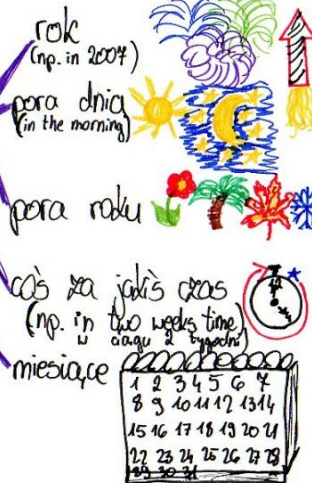 rok
(np. in 2007)
pora dnia
(in the morning)
pora roku
coś za jakiś czas
(np. in two weeks time)
w ciągu 2 tygodni
miesiące
1 2 3 4 5 6 7
8 9 10 11 12 13 14
15 16 17 18 19 20 21
22 23 24 25 26 27 28
29 30 31